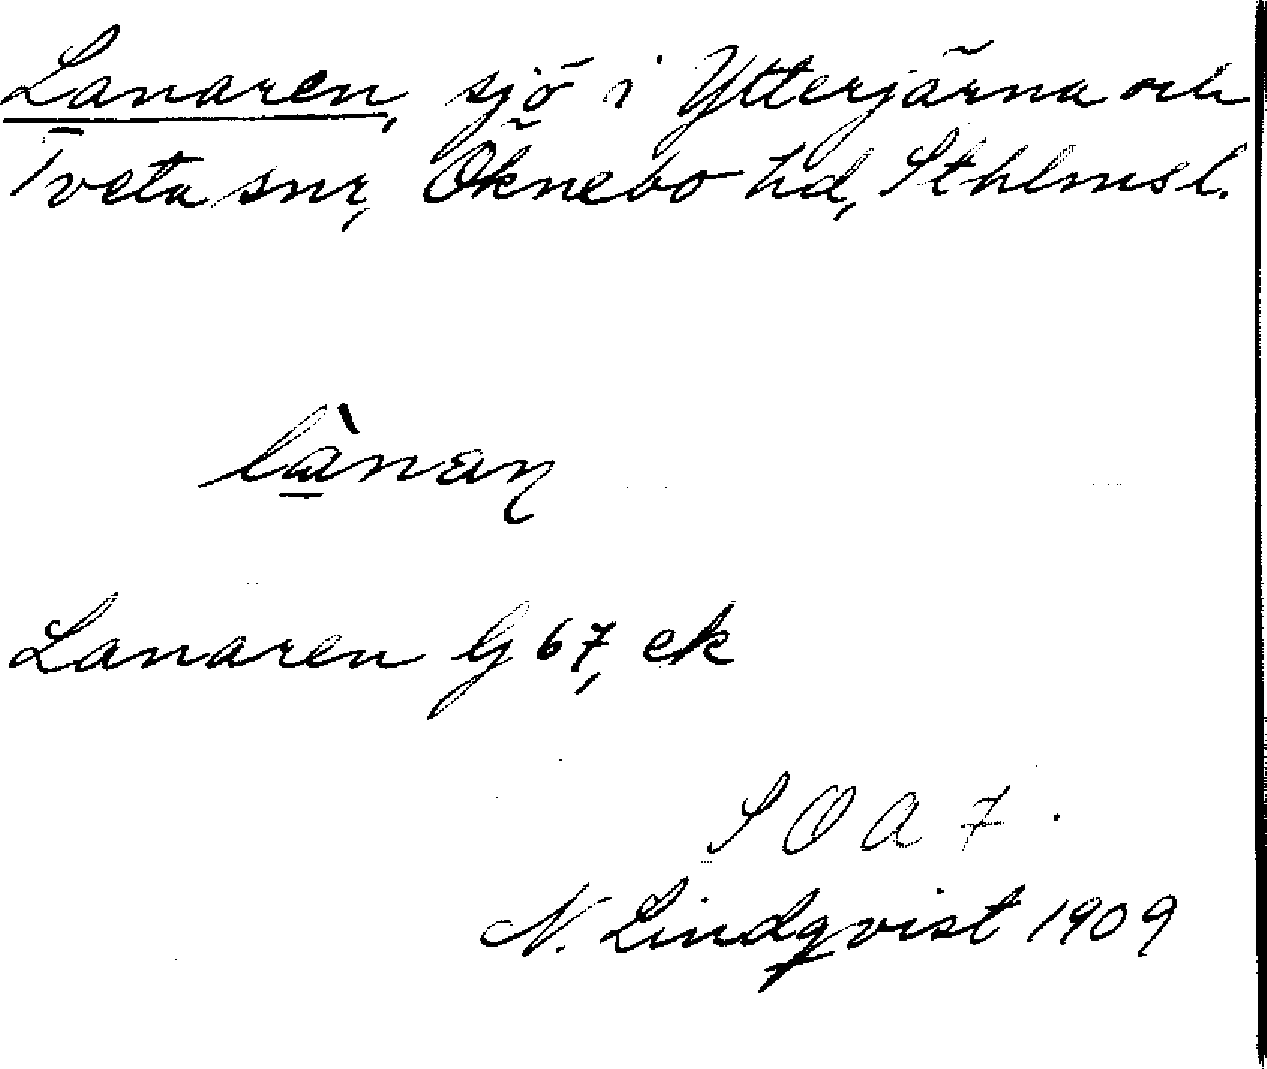 Lanaren, sjö i Ytterjärna och
Tveta snr, Öknebo hd, Sthlms l.
là̠naņ
Lanaren G 67, ek
SOA 7.
N. Lindqvist 1909